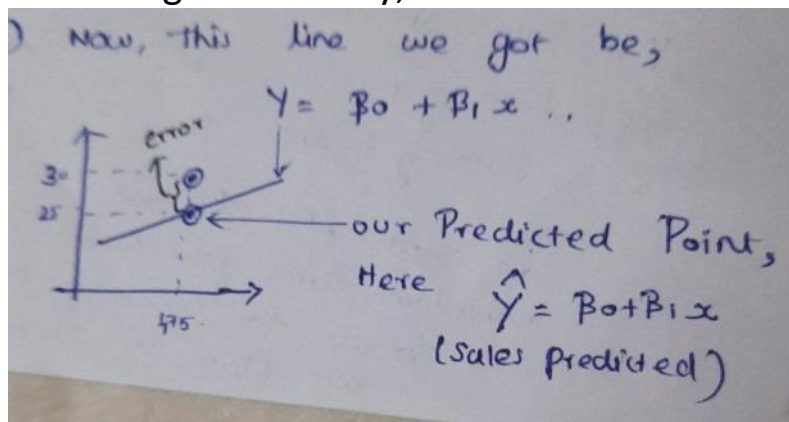 ) Now, this line we got be,
Y = β0 + β1 x ..
error
30
25
our Predicted Point,
Here Ŷ = β0+β1x
475
(Sales predicted)